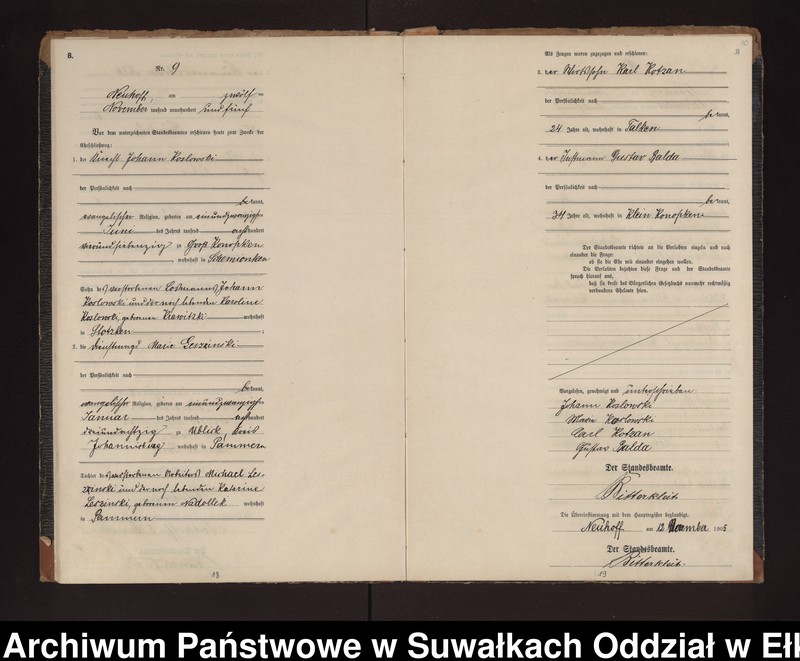 B.
Nr. 9
Neuhoff, am zwölften
November tausend neunhundert und fünf
Vor dem unterzeichneten Standesbeamten erschienen heute zum Zwecke der
Eheschließung:
1. der Knecht Johann Koslowski
der Persönlichkeit nach
bekannt,
evangelischer Religion, geboren am einundzwanzigsten
Juni des Jahres tausend achthundert
vierundsiebenzig zu Groß Konopken
, wohnhaft in Schemionken
Sohn des verstorbenen Losmanns Johann
Koslowski und der noch lebenden Karoline
Koslowski, geborenen Krawitzki wohnhaft
in Stotzken ;
2. die Dienstmagd Marie Leszinski
der Persönlichkeit nach
bekannt,
evangelischer Religion, geboren am einundzwanzigsten
Januar des Jahres tausend achthundert
dreiundachtzig zu Ublick, Kreis
Johannisburg wohnhaft in Pammern
Tochter des verstorbenen Arbeiters Michael Le-
szinski und der noch lebenden Katarine
Leszinski, geborenen Nadollek wohnhaft
in Pammern
18
Als Zeugen waren zugezogen und erschienen:
3. der Wirtssohn Karl Kotzan
der Persönlichkeit nach
bekannt,
24 Jahre alt, wohnhaft in Talken
4. der Instmann Gustav Balda
der Persönlichkeit nach
bekannt,
34 Jahre alt, wohnhaft in Klein Konopken
Der Standesbeamte richtete an die Verlobten einzeln und nach
einander die Frage:
ob sie die Ehe mit einander eingehen wollen.
Die Verlobten bejahten diese Frage und der Standesbeamte
sprach hierauf aus,
daß sie kraft des Bürgerlichen Gesetzbuchs nunmehr rechtmäßig
verbundene Eheleute seien.
Vorgelesen, genehmigt und unterschrieben
Johann Koslowski
Marie Koslowski
Carl Kotzan
Gustav Balda
Der Standesbeamte.
Ritterkleit
Die Übereinstimmung mit dem Hauptregister beglaubigt.
Neuhoff am 12 November 1905
Der Standesbeamte.
Ritterkleit.
19
Archiwum Państwowe w Suwałkach Oddział w Ełk